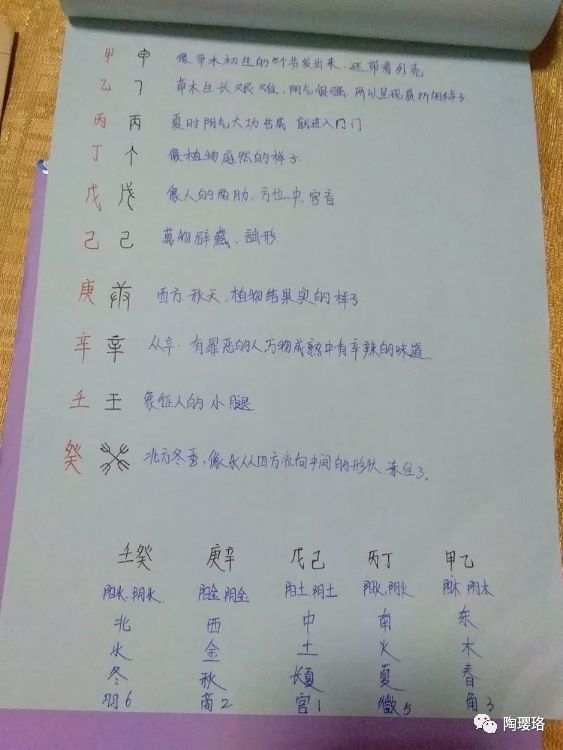 甲 申 像草木初生的时节发出来，还带着外壳
乙 ㄱ 草木生长艰难，阴气倔强，所以呈现曲折的样子
丙 丙 夏时阴气大功告成 就进入门门
丁 个 像植物庭然的样子
戊 戊 像人的两肋，方位，中，宫音
己 己 萬物辟藏、詘形
庚 西方 秋天，植物结果实的样子
辛 辛 从辛：有罪恶的人，万物成熟中有辛辣的味道
壬 王 象征人的小腿
癸 北方冬季，像水从四方流向中间的形状 冻住了。
壬癸 庚辛 戊己 丙丁 甲乙
阳水.阴水 阳金.阴金 阳土.阴土 阳火.阴火 阳木 阴木
北 西 中 南 东
水 金 土 火 木
冬 秋 长夏 夏 春
羽6 商2 宫1 徵5 角3
陶璎珞